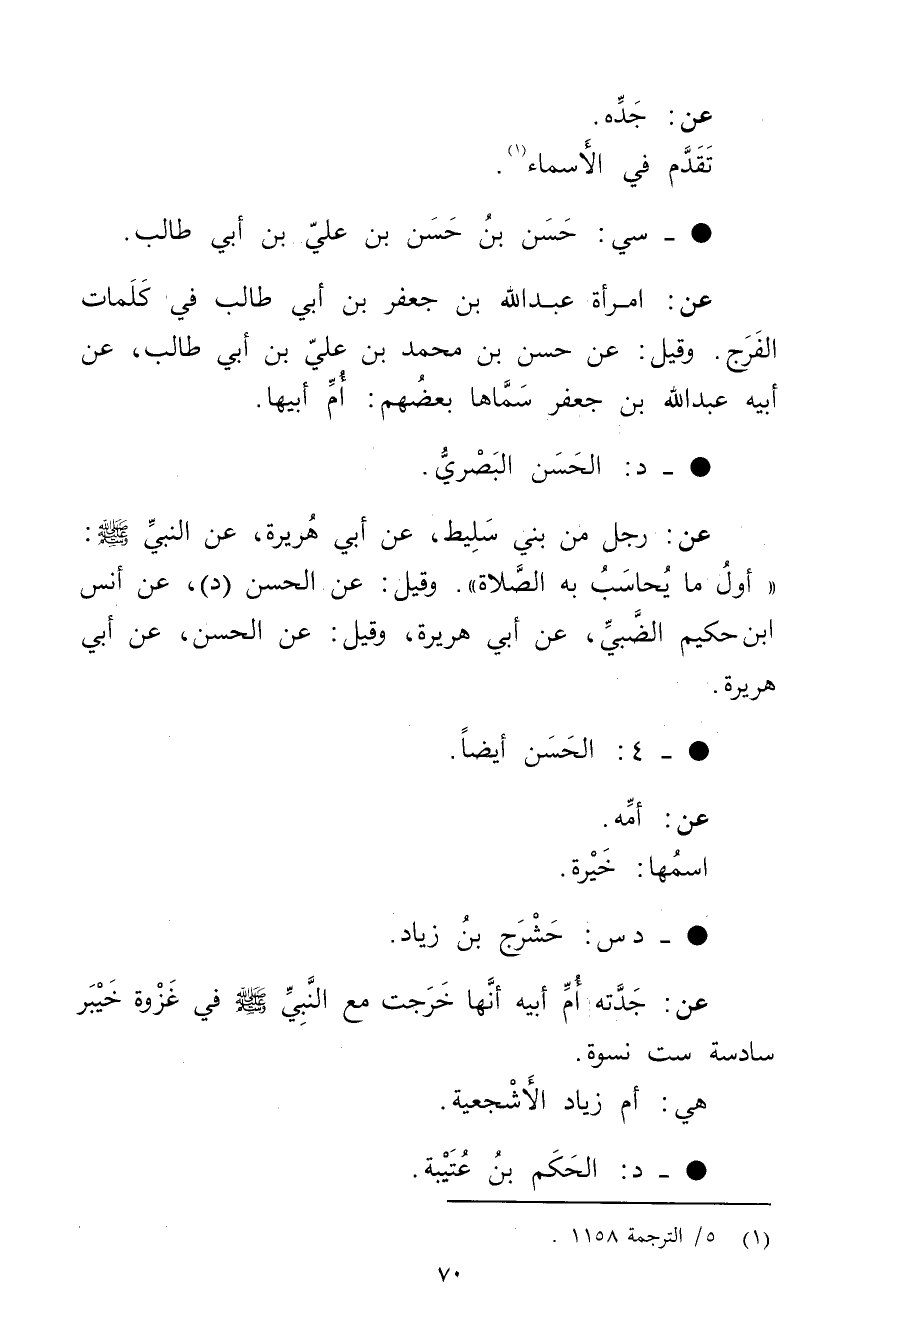 عن: جَدِّه.
تَقَدَّم في الأَسماء(١).
● ـ سي: حَسَن بنُ حَسَن بن عليّ بن أبي طالب.
عن: امـرأة عبـدالله بن جعفر بن أبي طالب في كَلَمات
الفَرَج. وقيل: عن حسن بن محمد بن عليّ بن أبي طالب، عن
أبيه عبدالله بن جعفر سَمَّاها بعضُهم: أُمِّ أبيها.
● ـ د: الحَسَن البَصْريُّ.
عن: رجل من بني سَلِيط، عن أبي هُريرة، عن النبيِّ ﷺ:
« أولُ ما يُحاسَبُ به الصَّلاة». وقيل: عن الحسن (د)، عن أنس
ابن حكيم الضَّبيِّ، عن أبي هريرة، وقيل: عن الحسن، عن أبي
هريرة.
● ـ ٤: الحَسَن أيضاً.
عن: أمِّه.
اسمُها: خَيْرة.
● ـ د س: حَشْرَج بنُ زياد.
عن: جَدَّته أُمِّ أبيه أنَّها خَرَجت مع النَّبِيِّ ﷺ في غَزْوة خَيْبَر
سادسة ست نسوة.
هي: أم زياد الأَشْجعية.
● ـ د: الحَكَم بنُ عُتَيْبة.
(١) ٥/ الترجمة ١١٥٨ .
٧٠